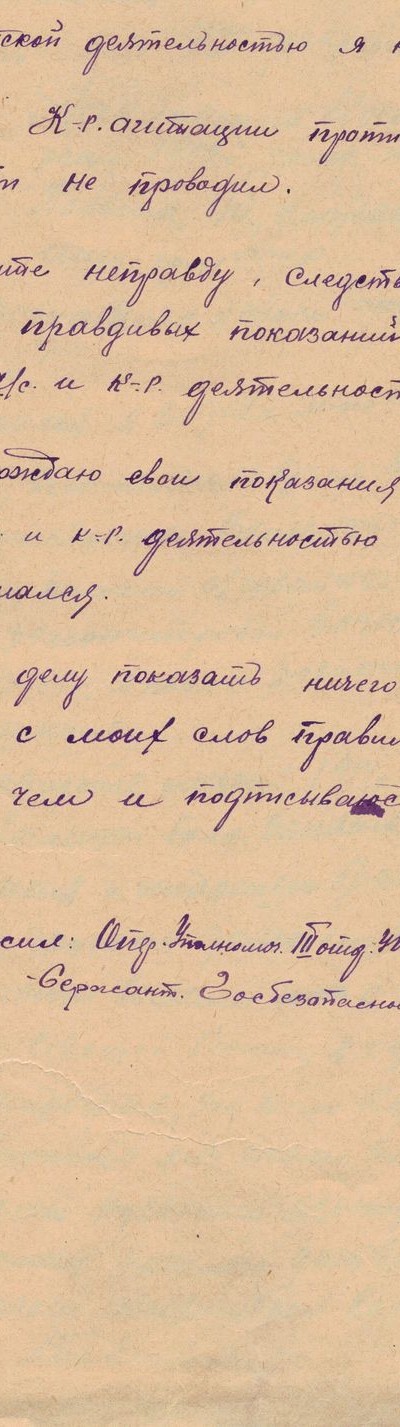 ской деятельностью я н
К-р. агитации проти
ти не проводил.
ите неправду, следств
правдивых показаний
А/с. и к-р. деятельност
рждаю свои показания
и к-р. деятельностью
мался.
делу показать ничего
с моих слов правил
чем и подписываюс
сил: Опер. Уполномоч. III отд. У
Сержант. Госбезапасно